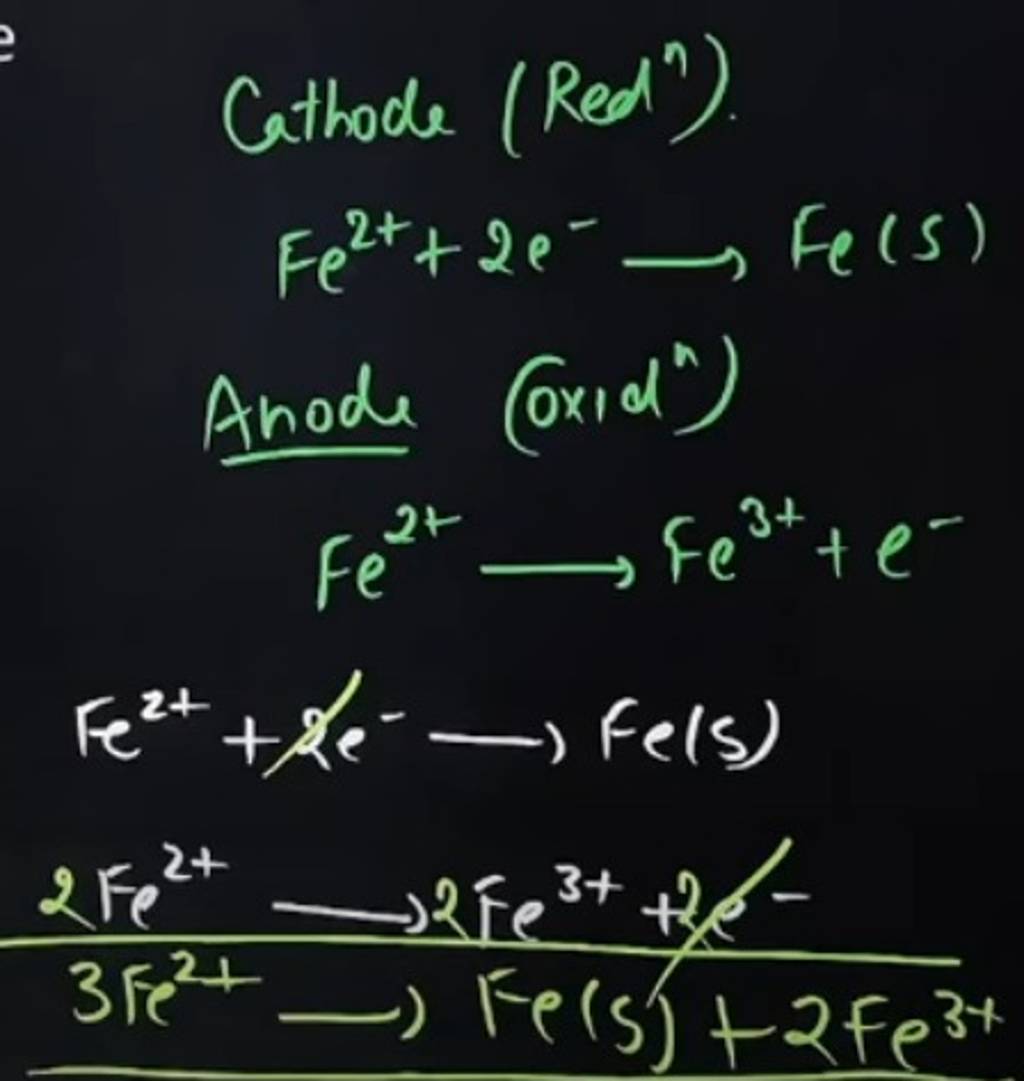 e
Cathode (Redⁿ).
Fe²⁺ + 2e⁻ → Fe(s)
Anode (oxidⁿ)
Fe²⁺ → Fe³⁺ + e⁻
Fe²⁺ + 2e⁻ → Fe(s)
2Fe²⁺ → 2Fe³⁺ + 2e⁻
3Fe²⁺ → Fe(s) + 2Fe³⁺